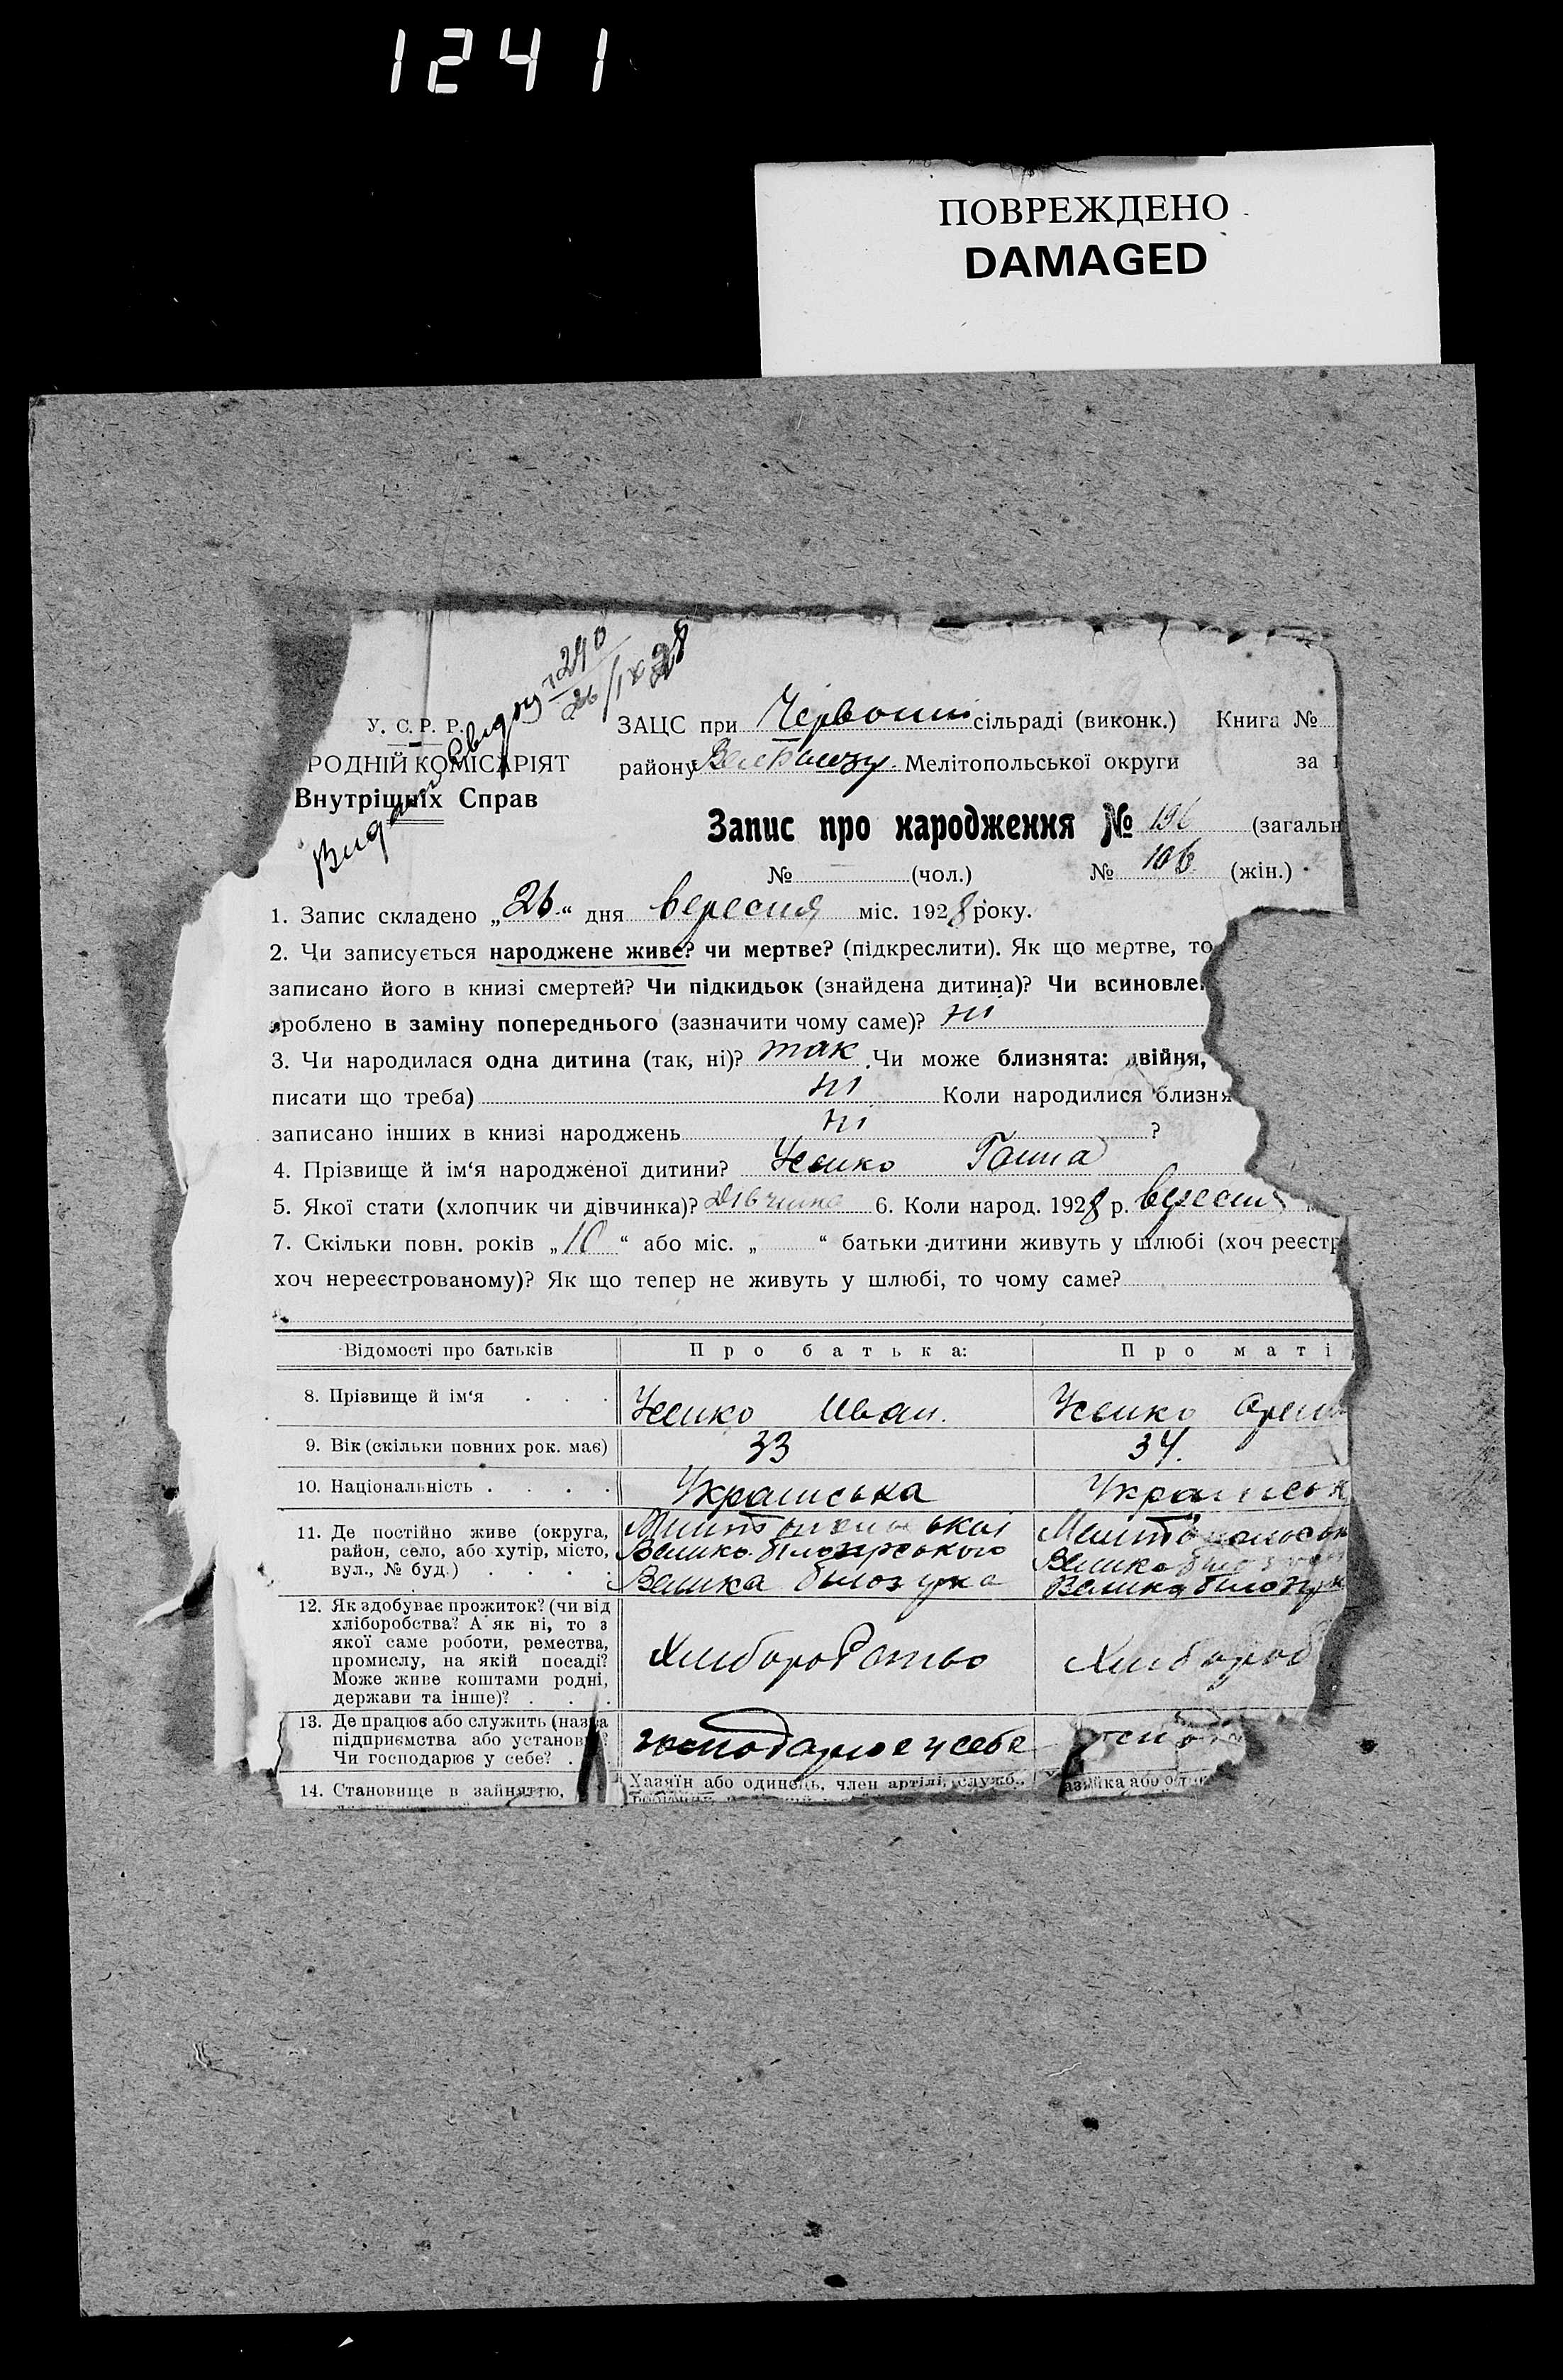 1241
ПОВРЕЖДЕНО
DAMAGED
240
26/IX 28
У. С. Р. Р.
РОДНІЙ КОМІСАРІЯТ
Внутрішніх Справ
ЗАЦС при Червоній сільраді (виконк.) Книга №
району Мелітопольської округи за 1
Запис про народження № 196 (загальн
№ (чол.) № 106 (жін.)
1. Запис складено „26“ дня вересня міс. 1928 року.
2. Чи записується народжене живе? чи мертве? (підкреслити). Як що мертве, то
записано його в книзі смертей? Чи підкидьок (знайдена дитина)? Чи всиновле
зроблено в заміну попереднього (зазначити чому саме)? ні
3. Чи народилася одна дитина (так, ні)? так. Чи може близнята: двійня,
писати що треба) ні Коли народилися близня
записано інших в книзі народжень ні ?
4. Прізвище й ім‘я народженої дитини? Ганна
5. Якої стати (хлопчик чи дівчинка)? дівчинка 6. Коли народ. 1928 р. вересня
7. Скільки повн. років „10“ або міс. „ “ батьки дитини живуть у шлюбі (хоч реєстр
хоч нереєстрованому)? Як що тепер не живуть у шлюбі, то чому саме?
Відомості про батьків Про батька: Про маті
8. Прізвище й ім‘я Иван.
9. Вік (скільки повних рок. має) 33 34.
10. Національність Українська Українськ
11. Де постійно живе (округа,
район, село, або хутір, місто, Велико білозірського
вул., № буд.) Велика білозірка
12. Як здобуває прожиток? (чи від
хліборобства? А як ні, то з
якої саме роботи, ремества,
промислу, на якій посаді? Хліборобство Хлібороб
Може живе коштами родні,
держави та інше)?
13. Де працює або служить (назва
підприємства або установи? господарює у себе
Чи господарює у себе?
14. Становище в зайняттю, Хазяїн або одинець, член артілі, службо., Хазяйка або од